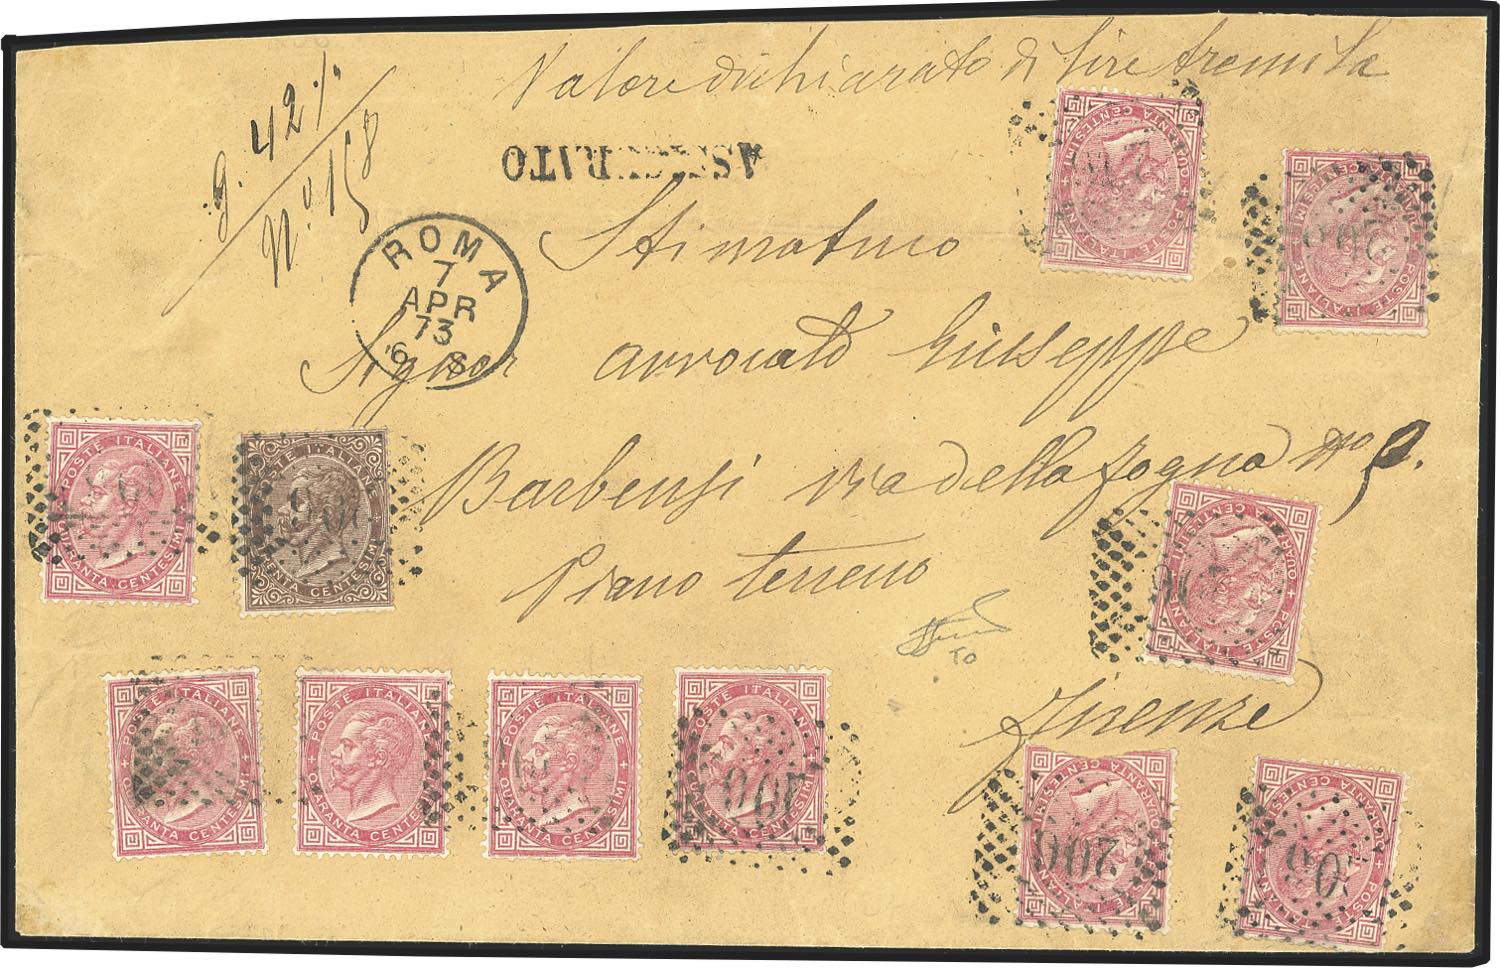 Valore dichiarato di Lire tremila
g. 42 1/2
N.º 158
ASSICURATO
ROMA
7
APR
73
6 S
Stimatmo
Signor avvocato Giuseppe
Barbensi via della fogna Nº 9.
Piano terreno
Firenze
TO
QUARANTA CENTESIMI
POSTE ITALIANE
QUARANTA CENTESIMI
POSTE ITALIANE
POSTE ITALIANE
QUARANTA CENTESIMI
POSTE ITALIANE
TRENTA CENTESIMI
207
QUARANTA CENTESIMI
POSTE ITALIANE
POSTE ITALIANE
QUARANTA CENTESIMI
POSTE ITALIANE
QUARANTA CENTESIMI
POSTE ITALIANE
QUARANTA CENTESIMI
POSTE ITALIANE
QUARANTA CENTESIMI
QUARANTA CENTESIMI
206
POSTE ITALIANE
QUARANTA CENTESIMI
POSTE ITALIANE